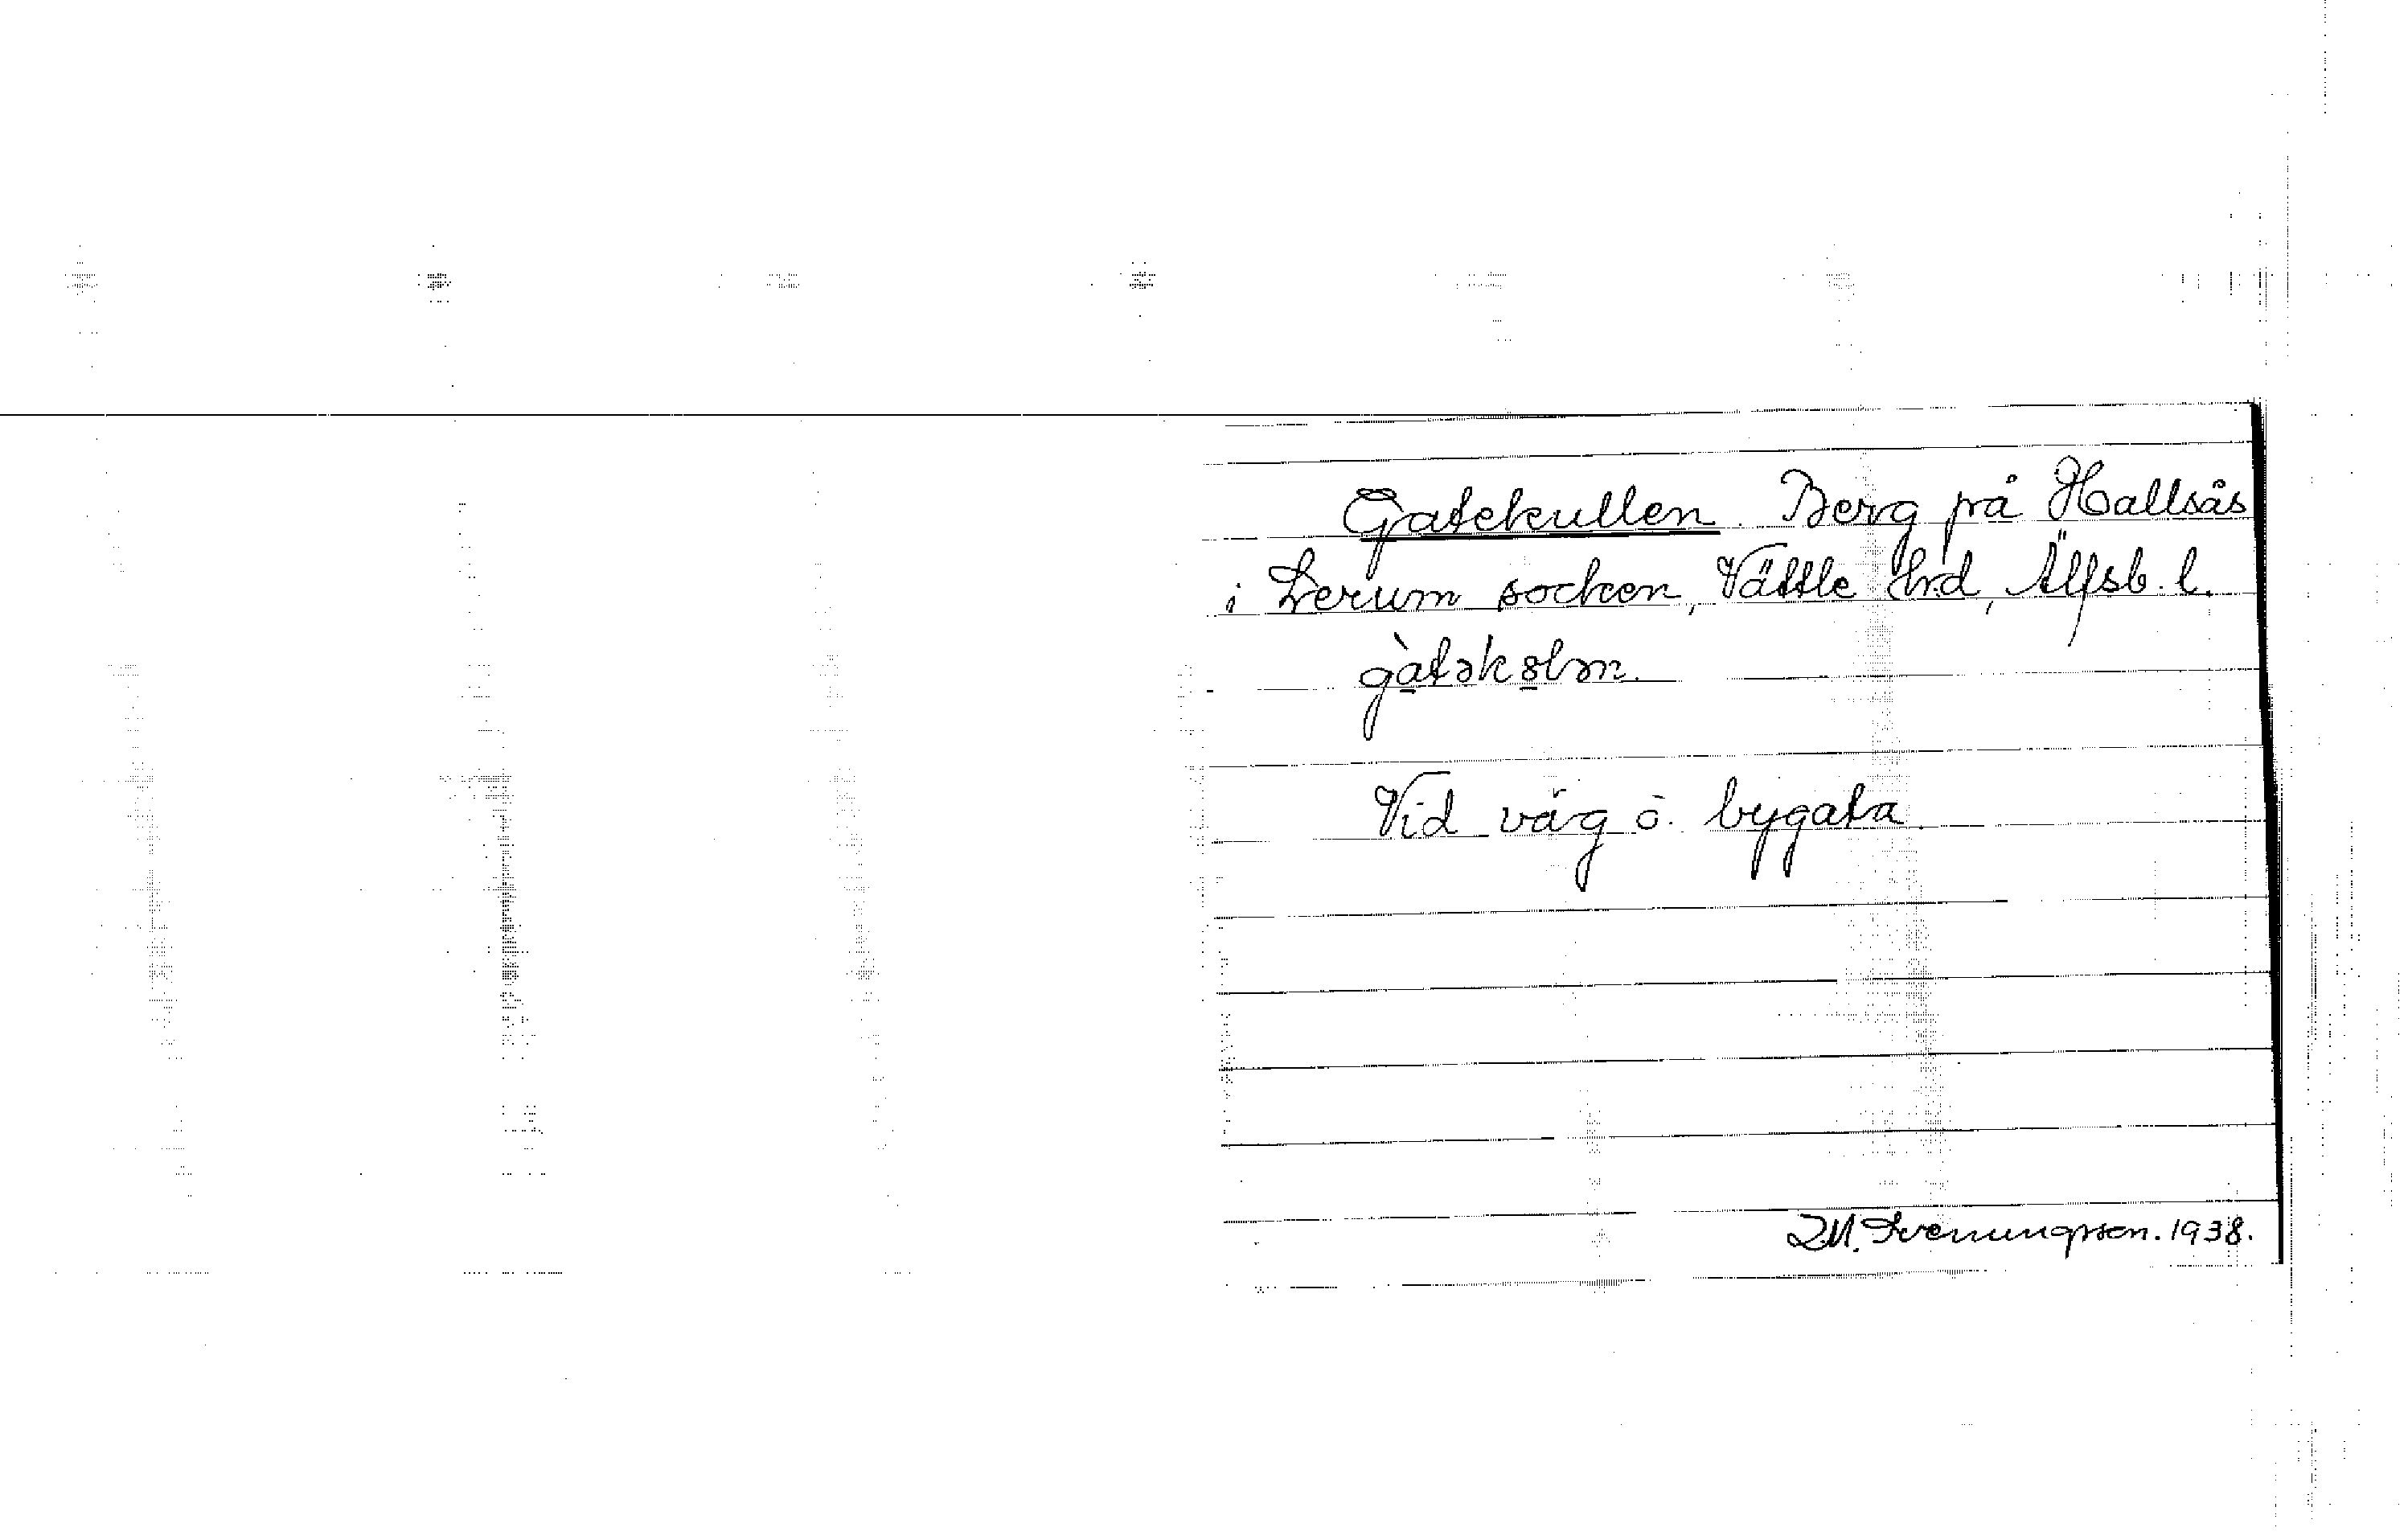 Gatekullen. Berg på Hallsås
i Lerum socken, Vättle hrd, Älfsb. l.
gàtəkɵlən.
Vid väg o. bygata.
Svenungsson. 1938.